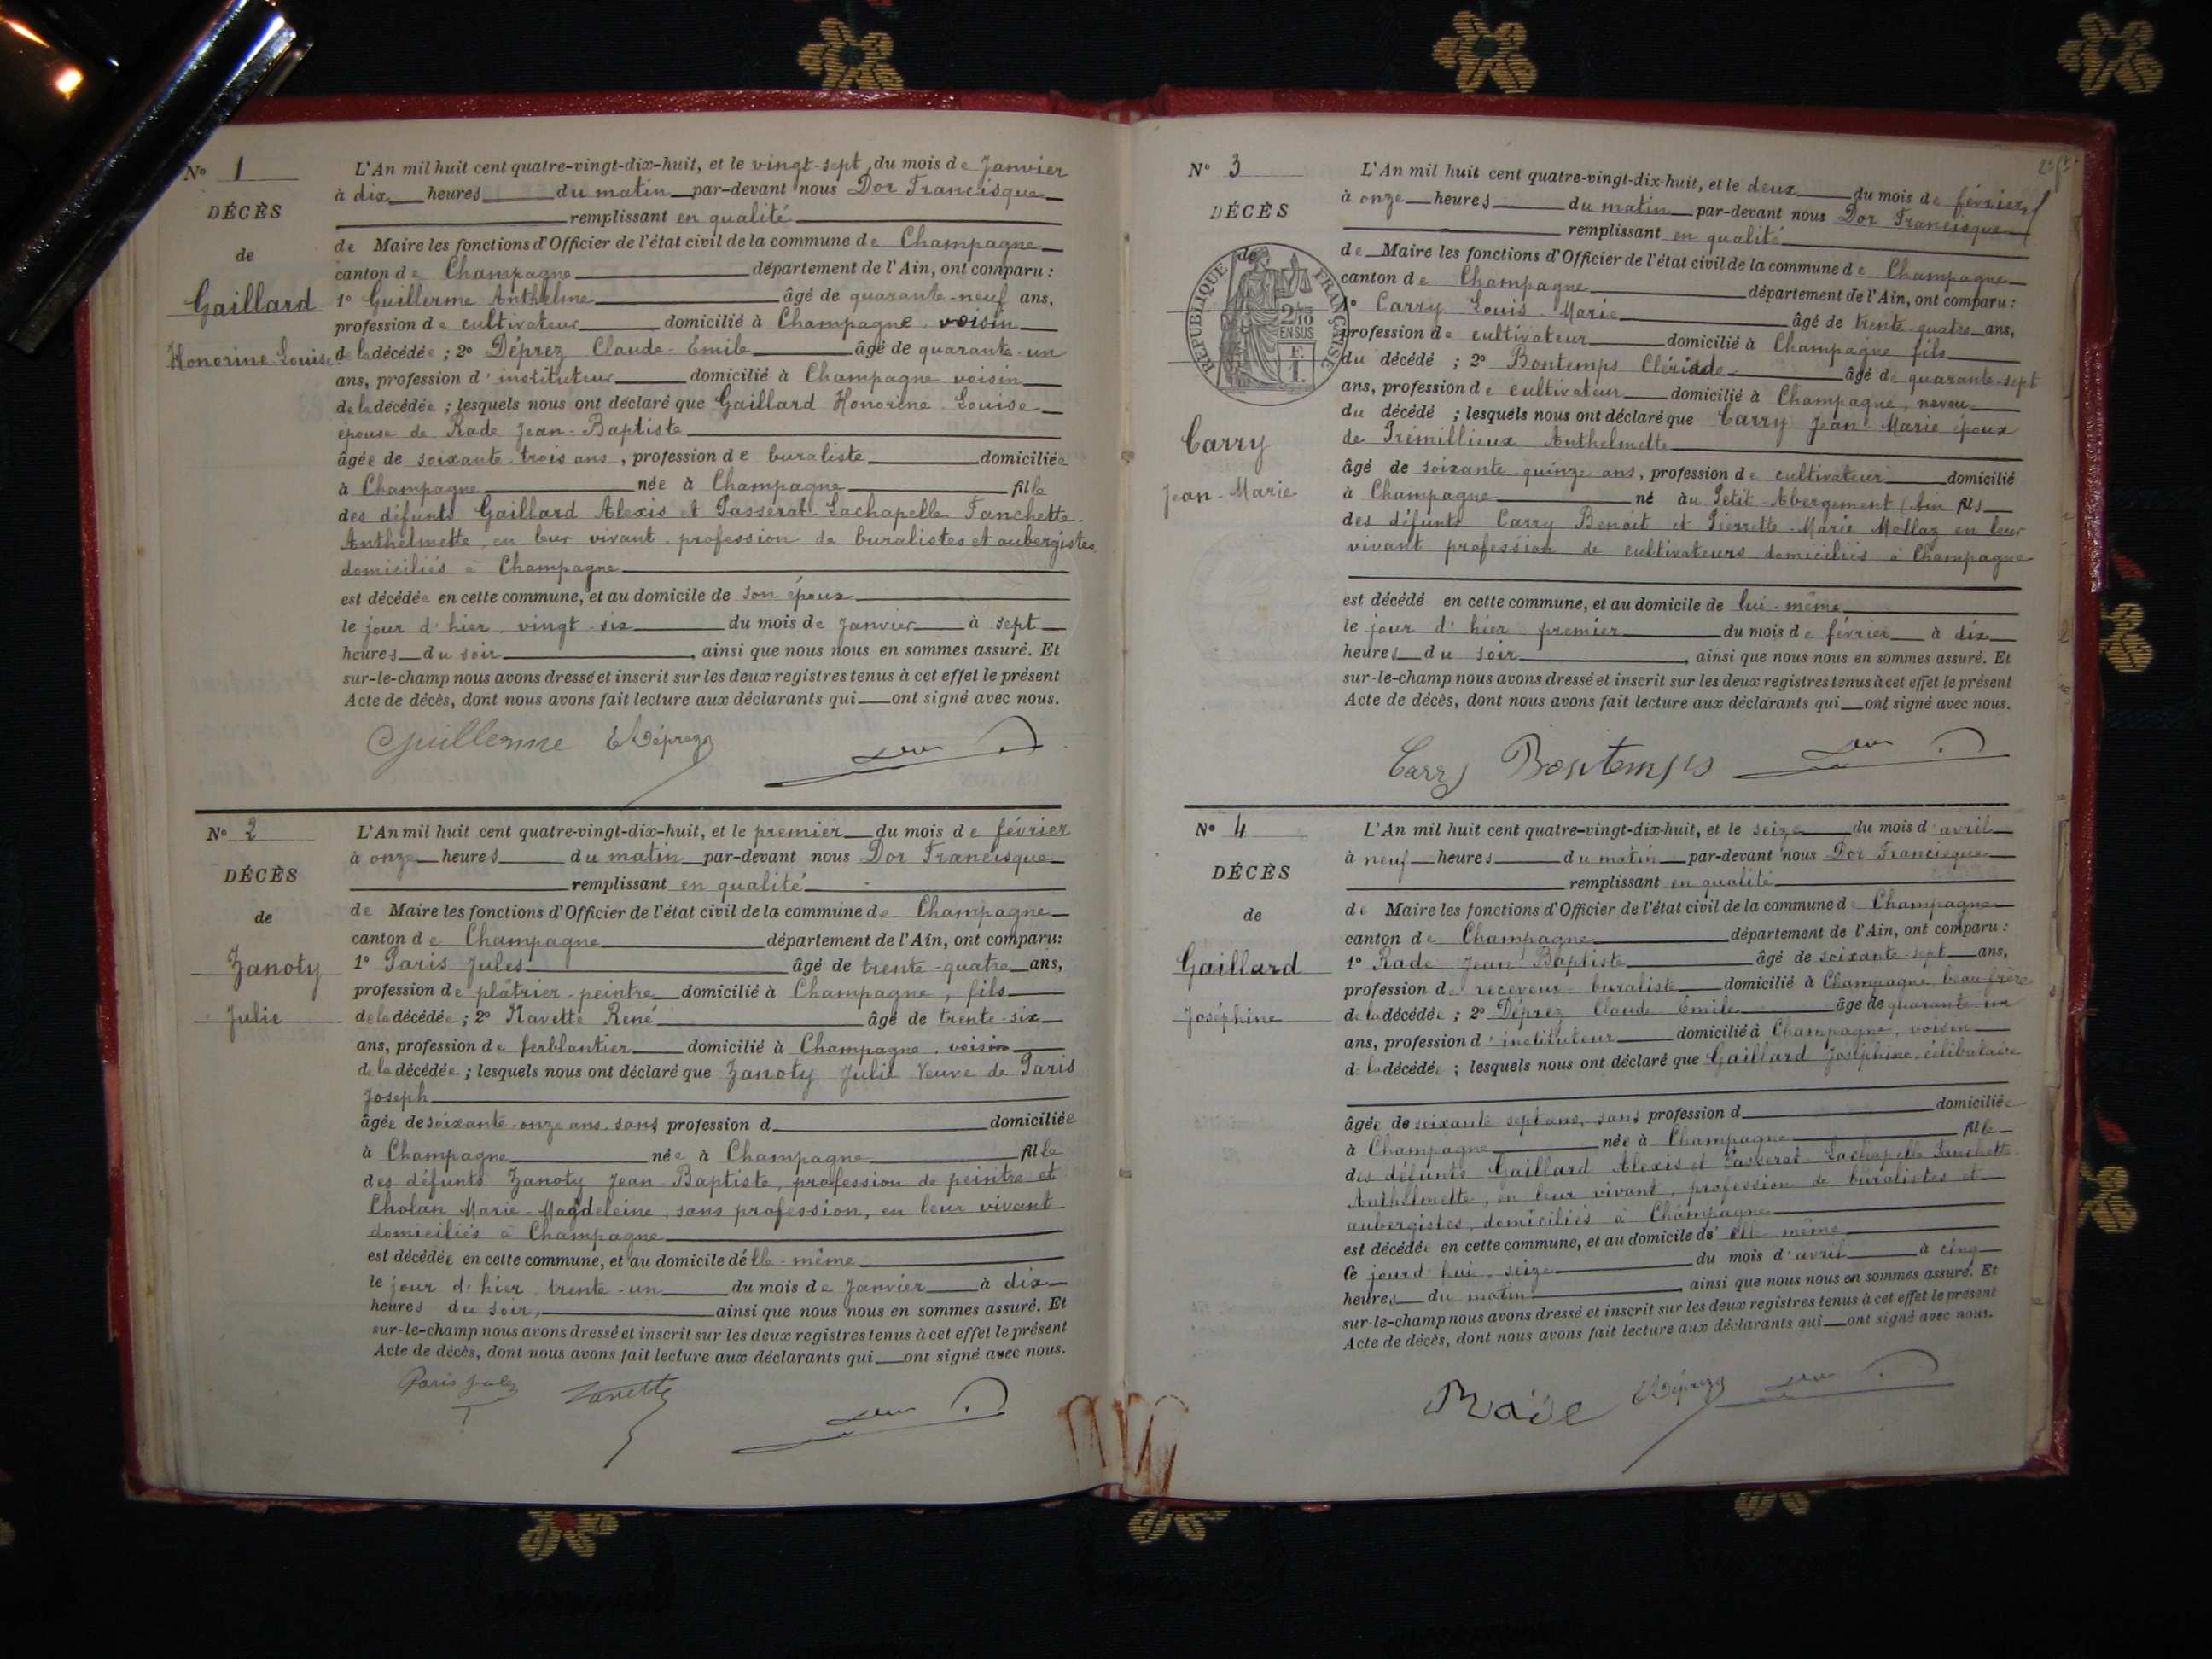 N° 1
DÉCÈS
de
Gaillard
Honorine Louise
L'An mil huit cent quatre-vingt-dix-huit, et le vingt-sept du mois de Janvier
à dix heures du matin par-devant nous Dor Francisque
remplissant en qualité
de Maire les fonctions d'Officier de l'état civil de la commune de Champagne
canton de Champagne département de l'Ain, ont comparu :
1° Guillerme Anthelme âgé de quarante-neuf ans,
profession de cultivateur domicilié à Champagne, voisin
de la décédée ; 2° Déprez Claude-Emile âgé de quarante-un
ans, profession d'instituteur domicilié à Champagne voisin
de la décédée ; lesquels nous ont déclaré que Gaillard Honorine Louise
épouse de Rade Jean-Baptiste
âgée de soixante-trois ans, profession de buraliste domiciliée
à Champagne née à Champagne fille
des défunts Gaillard Alexis et Passerat Lachapelle Fanchette-
Anthelmette, en leur vivant profession de buralistes et aubergistes
domiciliés à Champagne
est décédée en cette commune, et au domicile de son époux
le jour d'hier vingt-six du mois de Janvier à sept
heures du soir, ainsi que nous nous en sommes assuré. Et
sur-le-champ nous avons dressé et inscrit sur les deux registres tenus à cet effet le présent
Acte de décès, dont nous avons fait lecture aux déclarants qui ont signé avec nous.
Guillerme EDéprez
N° 2
DÉCÈS
de
Zanoty
Julie
L'An mil huit cent quatre-vingt-dix-huit, et le premier du mois de février
à onze heures du matin par-devant nous Dor Francisque
remplissant en qualité
de Maire les fonctions d'Officier de l'état civil de la commune de Champagne
canton de Champagne département de l'Ain, ont comparu :
1° Paris Jules âgé de trente-quatre ans,
profession de plâtrier-peintre domicilié à Champagne, fils
de la décédée ; 2° Navette René âgé de trente-six
ans, profession de ferblantier domicilié à Champagne, voisin
de la décédée ; lesquels nous ont déclaré que Zanoty Julie Veuve de Paris
Joseph
âgée de soixante-onze ans sans profession d domiciliée
à Champagne née à Champagne fille
des défunts Zanoty Jean-Baptiste, profession de peintre et
Cholan Marie-Magdeleine, sans profession, en leur vivant
domiciliés à Champagne
est décédée en cette commune, et au domicile d'élle-même
le jour d'hier trente-un du mois de Janvier à dix
heures du soir, ainsi que nous nous en sommes assuré. Et
sur-le-champ nous avons dressé et inscrit sur les deux registres tenus à cet effet le présent
Acte de décès, dont nous avons fait lecture aux déclarants qui ont signé avec nous.
Paris Jules
N° 3
DÉCÈS
de
RÉPUBLIQUE FRANÇAISE
2/10
EN SUS
Carry
Jean-Marie
L'An mil huit cent quatre-vingt-dix-huit, et le deux du mois de février
à onze heures du matin par-devant nous Dor Francisque
remplissant en qualité
de Maire les fonctions d'Officier de l'état civil de la commune de Champagne
canton de Champagne département de l'Ain, ont comparu :
1° Carry Louis Marie âgé de trente-quatre ans,
profession de cultivateur domicilié à Champagne fils
du décédé ; 2° Bontemps Clériade âgé de quarante-sept
ans, profession de cultivateur domicilié à Champagne, neveu
du décédé ; lesquels nous ont déclaré que Carry Jean-Marie époux
de Trémillieux Anthelmette
âgé de soixante-quinze ans, profession de cultivateur domicilié
à Champagne né au Petit-Abergement (Ain fils
des défunts Carry Benoit et Pierrette-Marie Mollaz en leur
vivant profession de cultivateurs domiciliés à Champagne
est décédé en cette commune, et au domicile de lui-même
le jour d'hier premier du mois de février à dix
heures du soir, ainsi que nous nous en sommes assuré. Et
sur-le-champ nous avons dressé et inscrit sur les deux registres tenus à cet effet le présent
Acte de décès, dont nous avons fait lecture aux déclarants qui ont signé avec nous.
Carry Bontemps
N° 4
DÉCÈS
de
Gaillard
Joséphine
L'An mil huit cent quatre-vingt-dix-huit, et le seize du mois d'avril
à neuf heures du matin par-devant nous Dor Francisque
remplissant en qualité
de Maire les fonctions d'Officier de l'état civil de la commune d Champagne
canton de Champagne département de l'Ain, ont comparu :
1° Rade Jean Baptiste âgé de soixante-sept ans,
profession de receveur buraliste domicilié à Champagne, beau-frère
de la décédée ; 2° Déprez Claude Emile âgé de quarante un
ans, profession d'instituteur domicilié à Champagne, voisin
de la décédée ; lesquels nous ont déclaré que Gaillard Joséphine, célibataire
âgée de soixante sept ans, sans profession d domiciliée
à Champagne née à Champagne fille
des défunts Gaillard Alexis et Passerat Lachapelle Fanchette
Anthelmette, en leur vivant, profession de buralistes et
aubergistes, domiciliés à Champagne
est décédée en cette commune, et au domicile d'elle même
Ce jourd'hui, seize du mois d'avril à cinq
heures du matin, ainsi que nous nous en sommes assuré. Et
sur-le-champ nous avons dressé et inscrit sur les deux registres tenus à cet effet le présent
Acte de décès, dont nous avons fait lecture aux déclarants qui ont signé avec nous.
Rade EDéprez